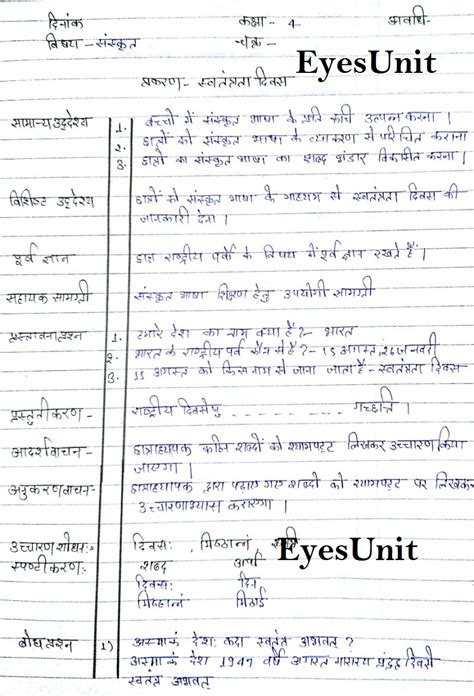 दिनांक कक्षा - 4 अवधि-
विषय - संस्कृत चक्र-
EyesUnit
प्रकरण- स्वतंत्रता दिवस
सामान्य उद्देश्य 1. बच्चों में संस्कृत भाषा के प्रति रुचि उत्पन्न करना।
2. छात्रों को संस्कृत भाषा के व्याकरण से परिचित कराना
3. छात्रों का संस्कृत भाषा का शब्द भंडार विकसित करना।
विशिष्ट उद्देश्य छात्रों को संस्कृत भाषा के माध्यम से स्वतंत्रता दिवस की
जानकारी देना।
पूर्व ज्ञान छात्र राष्ट्रीय पर्वो के विषय में पूर्व ज्ञान रखते हैं।
सहायक सामग्री संस्कृत भाषा शिक्षण हेतु उपयोगी सामग्री
प्रस्तावना प्रश्न 1. हमारे देश का नाम क्या है?- भारत
2. भारत के राष्ट्रीय पर्व कौन से है?- 15 अगस्त, 26 जनवरी
3. 15 अगस्त को किस नाम से जाना जाता है- स्वतंत्रता दिवस
प्रस्तुतीकरण- राष्ट्रीय दिवसेषु ........ गच्छन्ति।
आदर्शवाचन- छात्राध्यापक कठिन शब्दों को श्यामपट्ट लिखकर उच्चारण किया
जाएगा।
अनुकरण वाचन- छात्राध्यापक द्वारा पढ़ाए गए शब्दों को श्यामपट्ट पर लिखकर
उच्चारणाभ्यास कराएगा।
उच्चारण शोधन:- दिवस:, मिष्ठान्नं
EyesUnit
स्पष्टीकरण:- शब्द अर्थ
दिवस: दिन
मिष्ठान्नं मिठाई
बोध प्रश्न 1) अस्माकं देश: कदा स्वतंत्र अभवत्?
अस्माकं देश 1947 वर्षे अगस्त मासस्य पंद्रह दिवसे
स्वतंत्र अभवत्